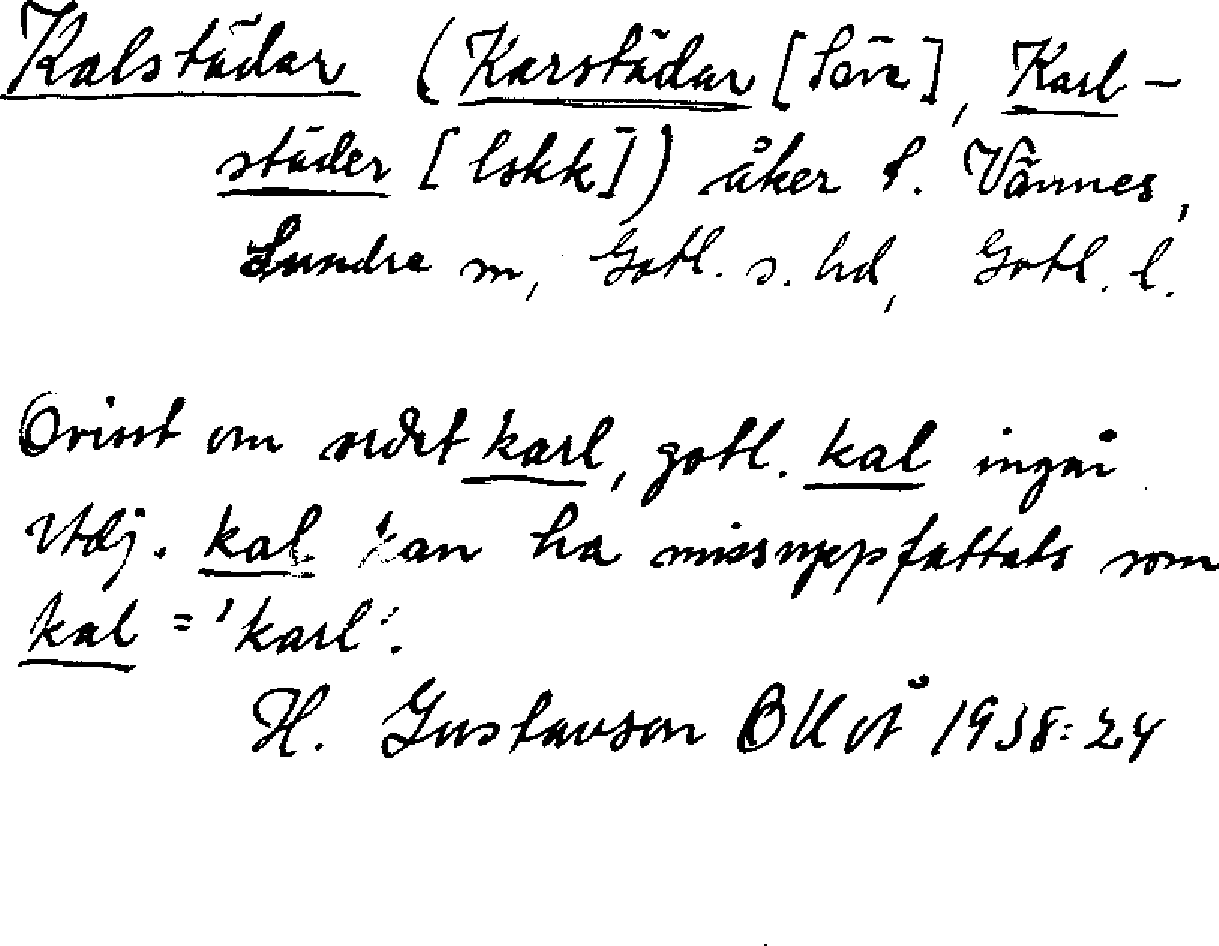 Kalstädar (Karstädar [Säve], Karl-
städer [lskk]) åker S. Vännes,
Sundre sn, Gotl. s. hd, Gotl. l.
Ovisst om ordet karl, gotl. kal ingår
Adj. kal kan ha missuppfattats som
kal = 'karl'.
H. Gustavson 1938:24